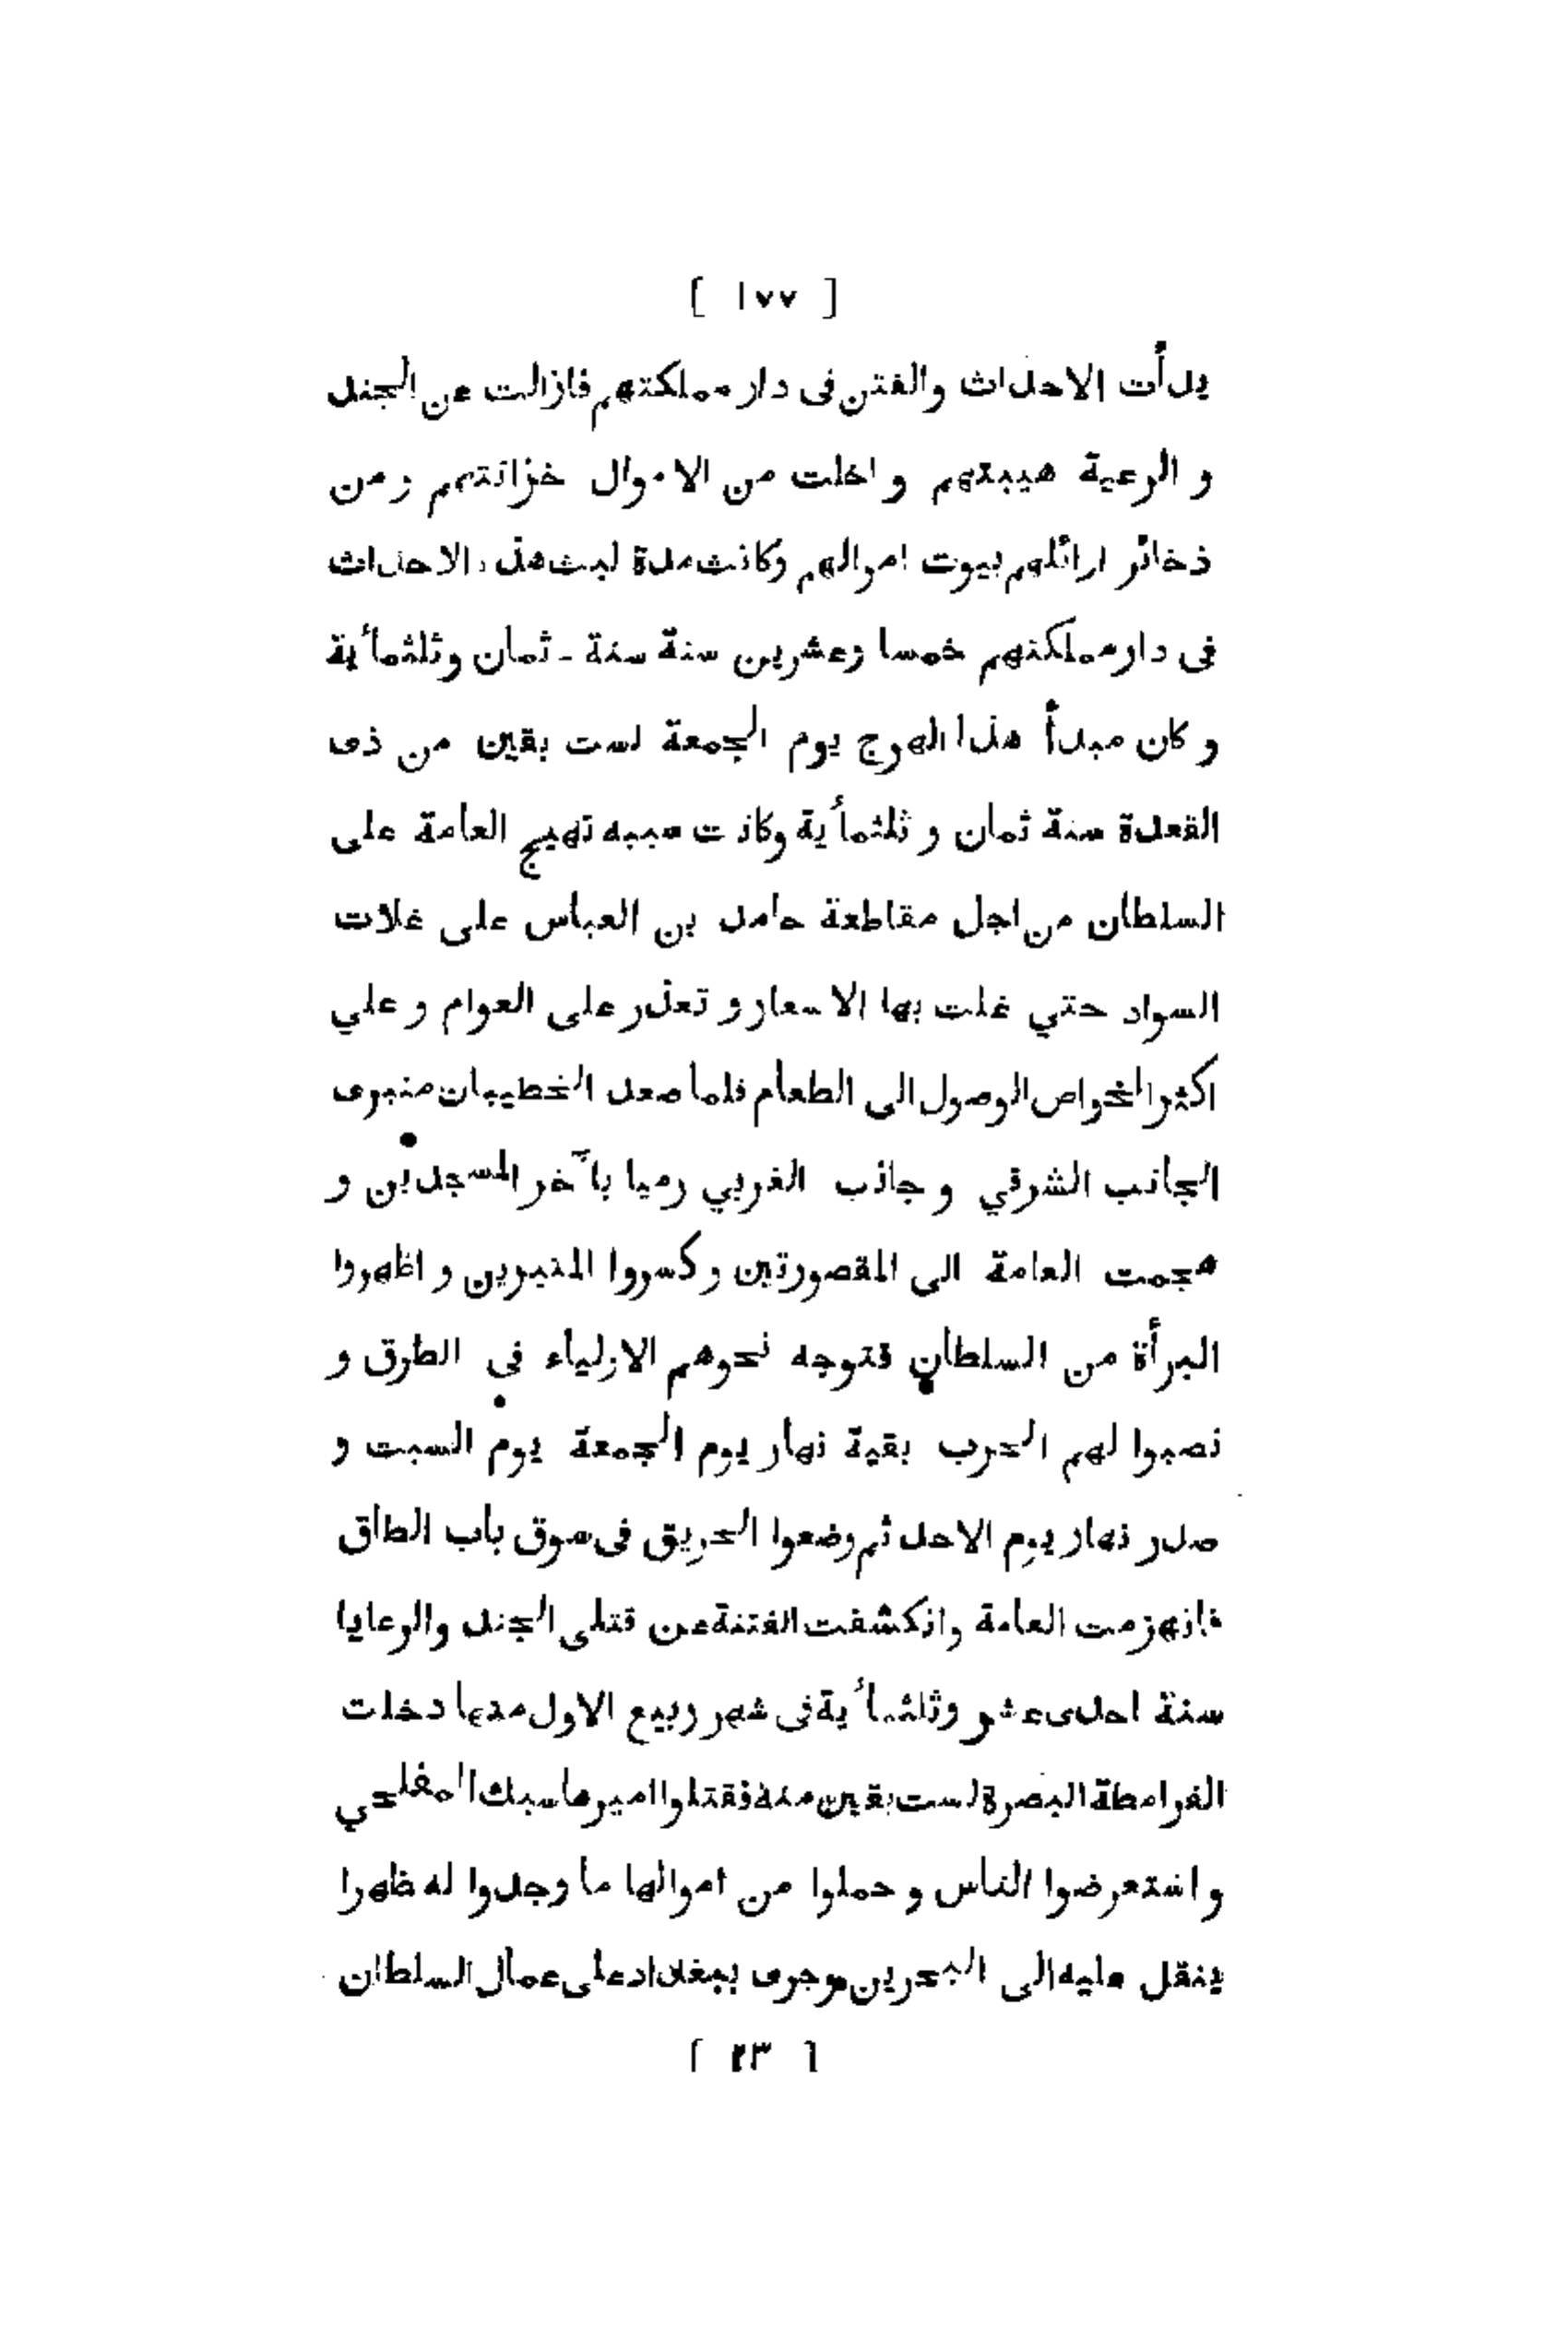 [ ١٧٧ ]
بدأت الاحداث والفتن فى دار مملكتهم فازالت عن الجند
و الرعية هيبتهم و اخلت من الاموال خزانتهم ومن
ذخائر اوائلهم بيوت اموالهم وكانت مدة لبث هذه الاحداث
فى دار مملكتهم خمسا وعشرين سنة سنة ـ ثمان وثلثمأية
و كان مبدأ هذا الهوج يوم الجمعة لست بقين من ذى
القعدة سنة ثمان و ثلثمأية وكانت سببه تهيج العامة على
السلطان من اجل مقاطعة حامد بن العباس على غلات
السواد حتي غلت بها الاسعار و تعذر على العوام و علي
اكثر الخواص الوصول الى الطعام فلما صعد الخطيبان منبرى
الجانب الشرقي و جانب الغربي رميا بآخر المسجدين و
هجمت العامة الى المقصورتين و كسروا المنبرين و اظهروا
البرأة من السلطان فتوجه نحوهم الاولياء في الطرق و
نصبوا لهم الحرب بقية نهار يوم الجمعة يوم السبت و
صدر نهار يوم الاحد ثم وضعوا الحريق فى سوق باب الطاق
فانهزمت العامة وانكشفت الفتنة عن قتلى الجند والرعايا
سنة احدى عشر وثلثمأية فى شهر ربيع الاول منها دخلت
القرامطة البصرة لست بقين منه فقتلوا اميرها سبك المفلحي
و استعرضوا الناس و حملوا من اموالها ما وجدوا له ظهرا
ينقل عليه الى البحرين وجرى ببغداد على عمال السلطان
[ ٢٣ ]